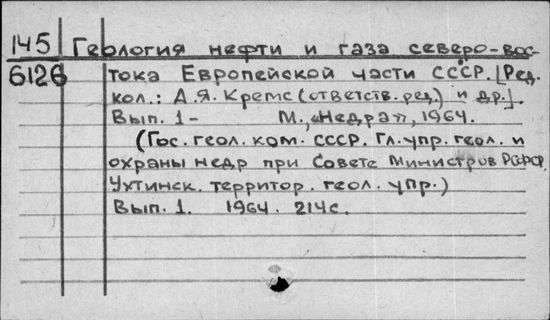 145 Геология нефти и газа северо-вос-
6126 тока Европейской части СССР. [Ред.
кол.: А.Я. Кремс (ответств. ред.) и др.].
Вып. 1- М., «Недра», 1964.
(Гос. геол. ком. СССР. Гл. упр. геол. и
охраны недр при Совете Министров РСФСР.
Ухтинск. территор. геол. упр.)
Вып. 1. 1964. 214с.